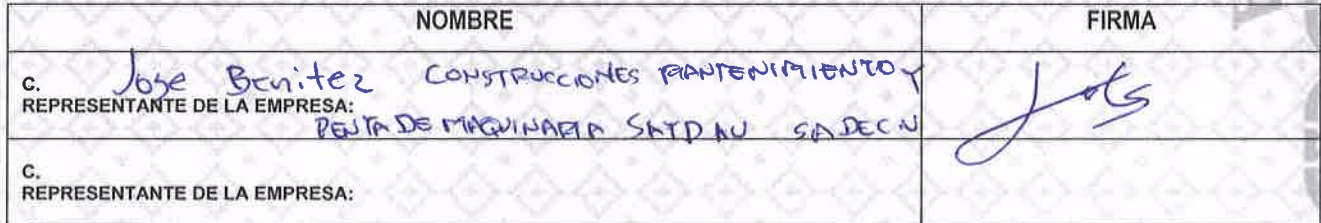 NOMBRE FIRMA
C. Jose Benitez CONSTRUCCIONES MANTENIMIENTO Y
REPRESENTANTE DE LA EMPRESA:
RENTA DE MAQUINARIA SATDAU SADECV
C.
REPRESENTANTE DE LA EMPRESA: